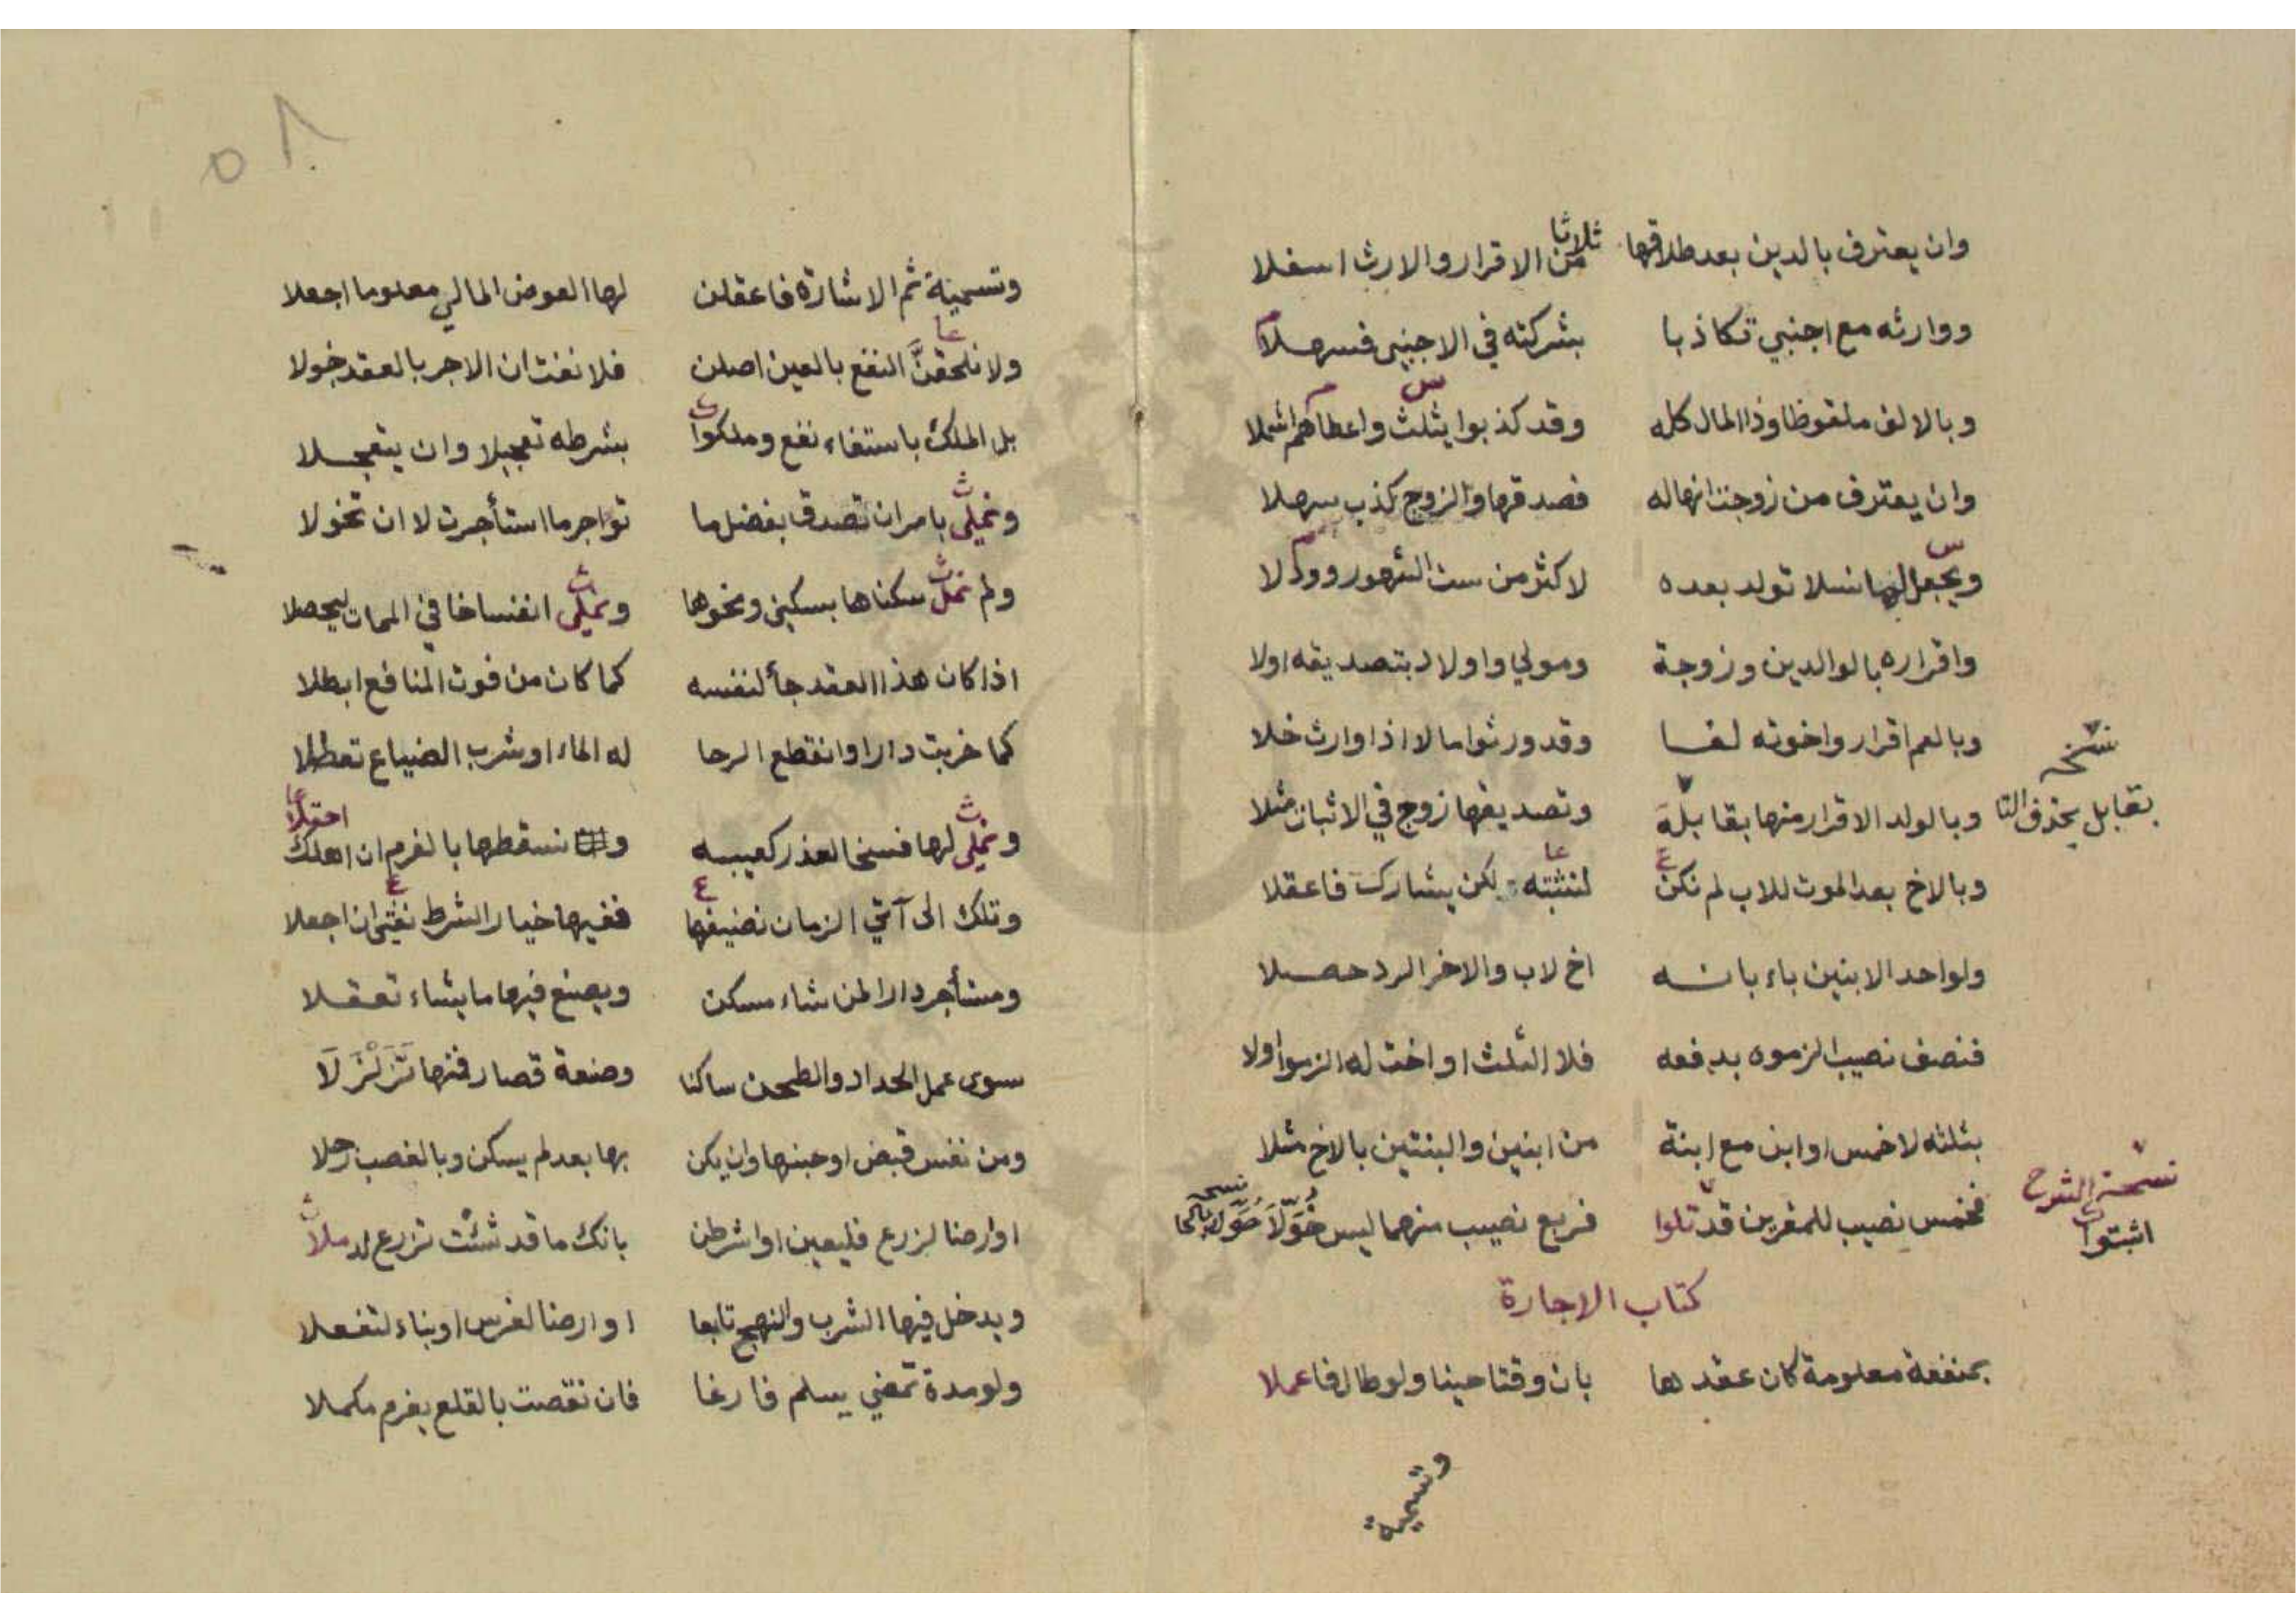 وان يعترف بالدين بعد طلاقها ثلاثا من الاقرار والارث اسفلا
ووارثه مع اجنبي تكاذبا بشركته في الاجنبي فسهلا
وبالالف ملقوظا وذا المال كله وقد كذبوا بثلث واعطاهم اشملا
وان يعترف من زوجت انها له فصدقها والزوج كذب سهلا
ويجعل لها نسلا تولد بعده لاكثر من ست الشهور ووكلا
واقراره بالوالدين وزوجة ومولي واولاد بتصديقه اولا
وبالعم اقرار واخوته لغا وقد ورثوا مالا اذا وارث خلا
نسخه
بقابل بحذف التا
وبالولد الاقرار منها بقابلة وتصديقها زوج في الاثبات مثلا
وبالاخ بعد الموت للاب لم نكن لنثبته لكن يشارك فاعقلا
ولواحد الابنين باء بانه اخ لاب والاخر الرد حصلا
فنصف نصيب الزموه بدفعه فلا الثلث او اخت له الزموا ولا
بثلثه لا خمس او ابن مع ابنة من ابنين والبنتين بالاخ مثلا
نسخة الشرح
اثبتوا
فخمس نصيب للمقرين قد تلوا فربع نصيب منهما ليس خُوّلَا
نسخه حُوّلا بالحا
كتاب الاجارة
بمنفعة معلومة كان عقدها بان وقتا حينا ولو طال فاعملا
وتسمية
٥٨
وتسمية ثم الاشارة فاعقلن لها العوض المالي معلوما اجعلا
ولا نلحقنَّ النفع بالعين اصلن فلا نفت ان الاجر بالعقد خولا
بل الملك باستفاء نفع وملكوا بشرطه تعجيلا وان يتعجلا
ونملي بامر ان تصدق بفضل ما تواجر ما استأجرت لا ان تخولا
ولم نمل سكناها بسكني ونحوها ونملي انفساخا في الممات ليحصلا
اذا كان هذا العقد جأ لنفسه كما كان من فوت المنافع ابطلا
كما خربت دارا وانقطع الرحا له الماء او شرب الضياع تعطلا
ونملي لها فسخا لعذر كعيبه ونسقطها بالغرم ان اهلك احقلا
وتلك الى آتي الزمان نضيفها ففيها خيار الشرط نفتي ان اجعلا
ومستأجر دارا لمن شاء مسكن ويصنع فيها ما يشاء تعقلا
سوى عمل الحداد والطحن ساكنا وصنعة قصار فنها تَزَلْزَلَا
ومن نفس قبض او حبنها وان يكن بها بعد لم يسكن وبالغصب رحلا
اوارضا لزرع فليعين او اشرطن بانك ما قد شئت تزرع لد ملا
ويدخل فيها الشرب والنهج تابعا او ارضا لغرس او بناء لتفعلا
ولو مدة تمضي يسلم فارغا فان نقصت بالقلع يغرم مكملا